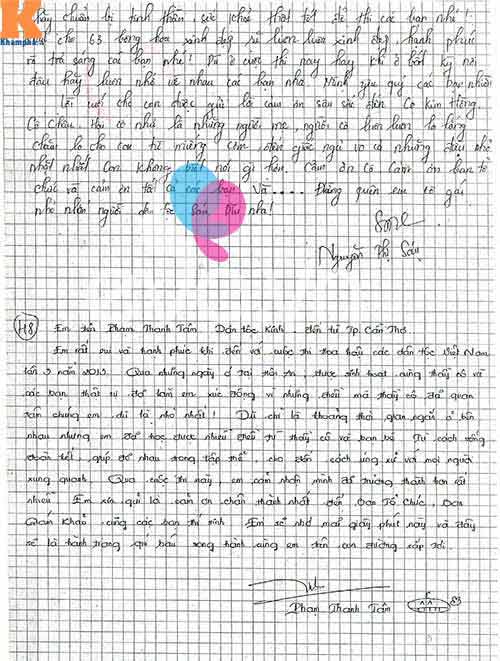 K
Khamphá
Hãy chuẩn bị tinh thần, sức khỏe thật tốt để thi các bạn nhé!
cho 63 bông hoa xinh đẹp sẽ luôn luôn xinh đẹp, hạnh phúc
và tỏa sáng các bạn nhé! Dù ở cuộc thi này hay khi ở bất kỳ nơi
đâu hãy luôn nhớ về nhau các bạn nhé Mình yêu quý các bạn nhiều
Lời cuối cho con được gửi lời cảm ơn sâu sắc đến Cô Kim Hồng,
Cô Châu. Hai cô như là những người mẹ, người cô luôn luôn lo lắng
chăm lo cho con từ miếng cơm đến giấc ngủ và cả những điều nhỏ
nhặt nhất Con không biết nói gì hơn. Cảm ơn Cô Cảm ơn ban tổ
chức và cảm ơn tất cả các bạn Và .... Đừng quên em cô gái
nhỏ nhắn người dân tộc Sán Dìu nha!
Nguyễn Thị
H8
Em tên Phạm Thanh Tâm. Dân tộc Kinh, đến từ Tp. Cần Thơ.
Em rất vui và hạnh phúc khi đến với cuộc thi Hoa hậu các dân tộc Việt Nam
lần 3 năm 2013. Qua những ngày ở tại Hội An, được sinh hoạt cùng thầy cô và
các bạn thật sự đã làm em xúc động vì những điều mà thầy cô đã quan
tâm chúng em dù là nhỏ nhất! Dù chỉ là thoáng thời gian ngắn ở bên
nhau nhưng em đã học được nhiều điều từ thầy cô và bạn bè Từ cách sống
đoàn kết, giúp đỡ nhau trong tập thể, cho đến cách ứng xử với mọi người
xung quanh. Qua cuộc thi này, em cảm nhận mình đã trưởng thành hơn rất
nhiều. Em xin gửi lời cảm ơn chân thành nhất đến Ban Tổ Chức, Ban
Giám Khảo cùng các bạn thí sinh. Em sẽ nhớ mãi giây phút này và đây
sẽ là hành trang quý báu song hành cùng em trên con đường sắp tới.
Phạm Thanh Tâm
83